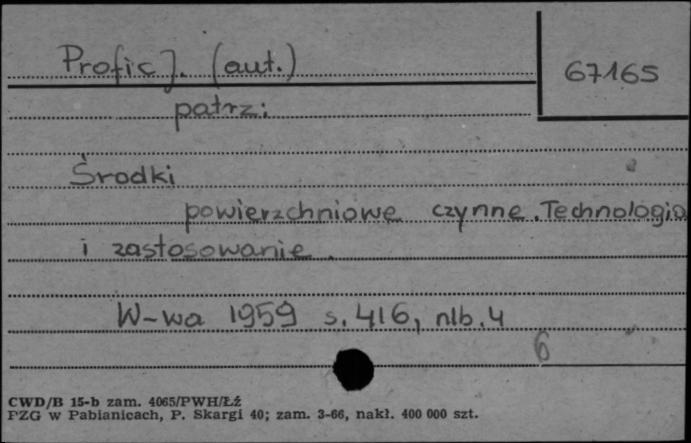 Profic J. (aut.)
67165
patrz:
Środki
powierzchniowe czynne. Technologia
i zastosowanie.
W-wa 1959 s. 416, nlb. 4
6
CWD/B 15-b zam. 4065/PWH/Łź
PZG w Pabianicach, P. Skargi 40; zam. 3-66, nakł. 400 000 szt.